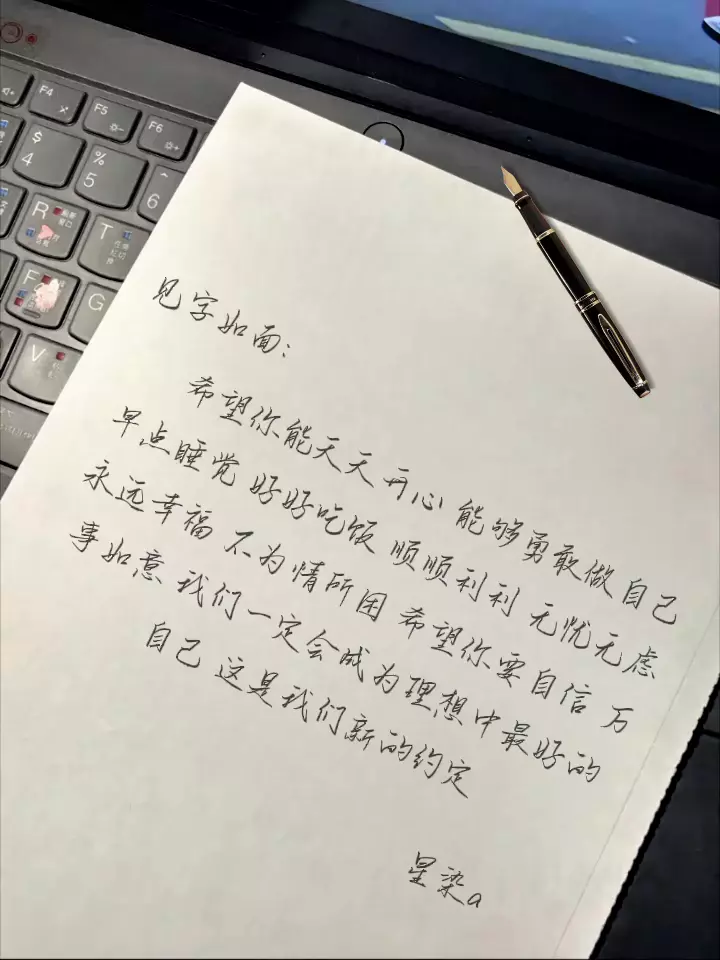 见字如面：
希望你能天天开心 能够勇敢做自己
早点睡觉 好好吃饭 顺顺利利 无忧无虑
永远幸福 不为情所困 希望你要自信 万
事如意 我们一定会成为理想中最好的
自己 这是我们新的约定
星染a
F4
F5
F6
$
4
%
5
^
6
R
T
F
G
V